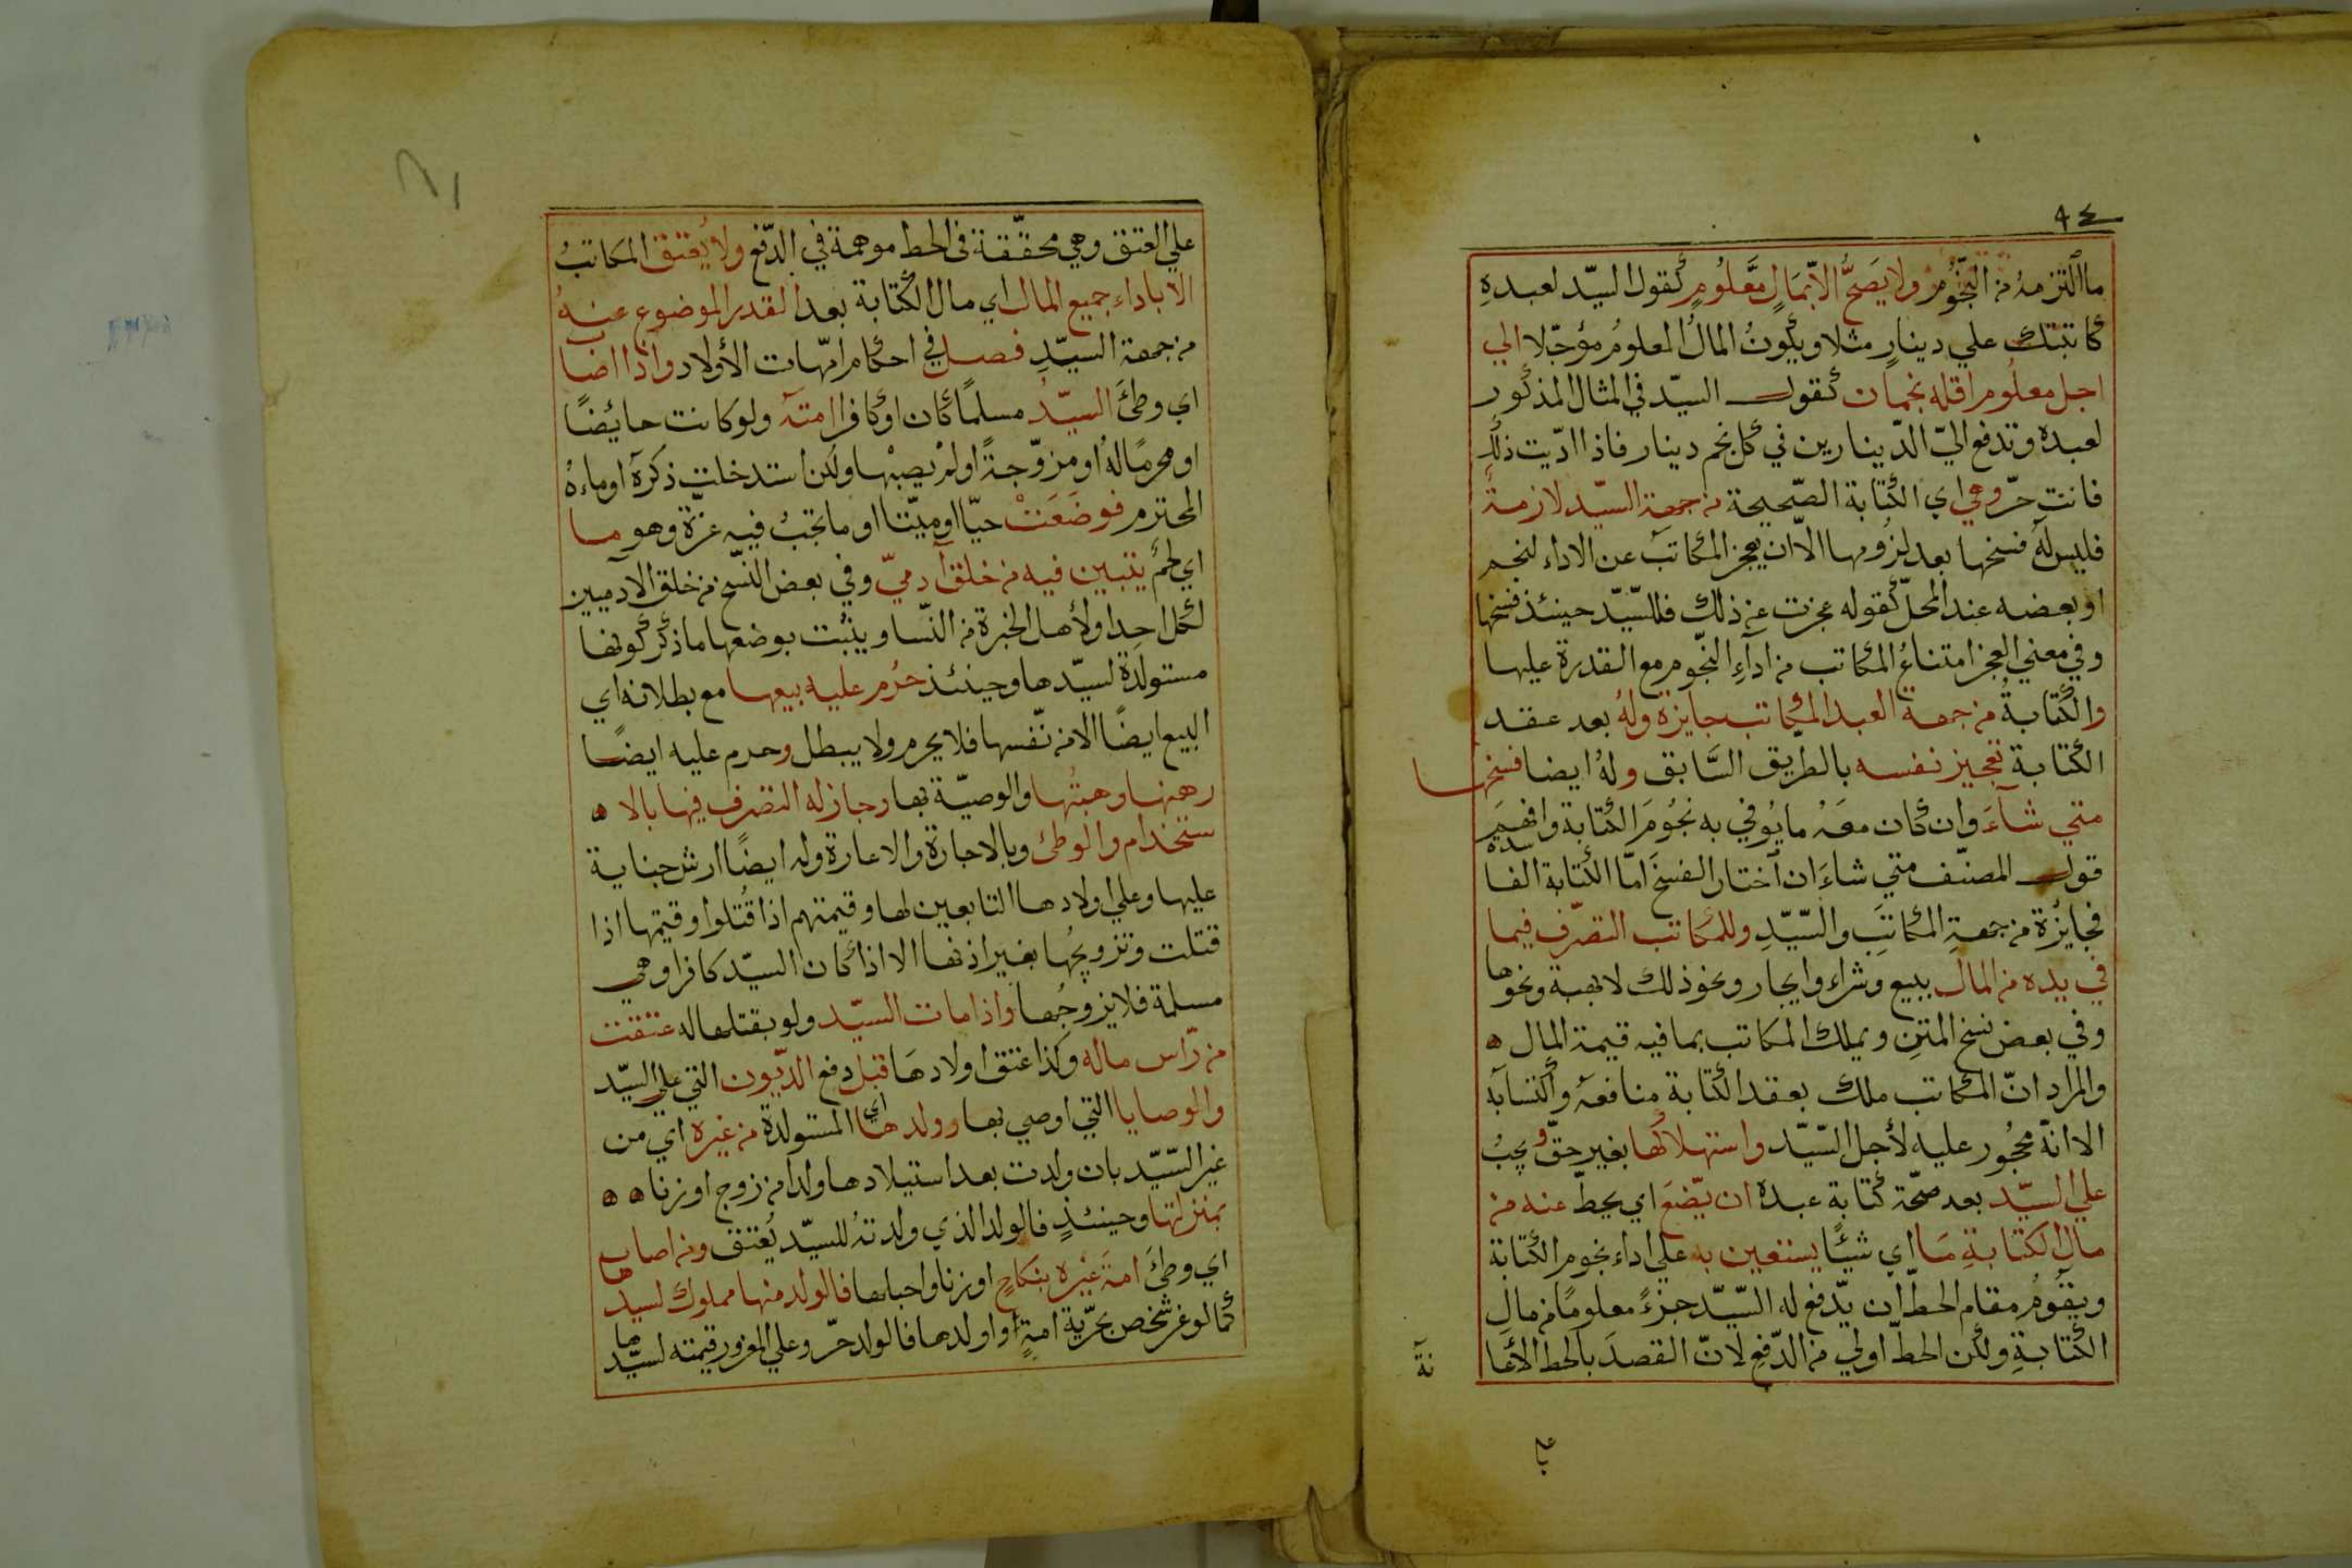 ٩٤
ما التزمه من النّجُوم ولا يَصحُّ الّا بمَالٍ مَّعلُومٍ كقول السيّد لعبدهِ
كاتبتك علي دينارٍ مثلا ويكونُ المالُ المعلومُ مؤجّلا الي
اجل معلُوم اقله نجمان كقول السيّد في المثال المذكور
لعبده وتدفع اليّ الدّينارين في كل نجم دينار فاذا ادّيت ذلك
فانت حرّ وهي اي الكتابة الصّحيحة من جهة السيّد لازمةٌ
فليس له فسخها بعد لزُومها الّا ان يعجز المكاتب عن الاداء لنجم
او بعضه عند المحلّ كقوله عجزت عن ذلك فللسّيّد حينئذ فسخها
وفي معني العجز امتناعُ المكاتب من اداءِ النّجوم مع القدرة عليها
والكتابةُ من جهة العبد المكاتب جايزة ولهُ بعد عقد
الكتابة تعجيز نفسه بالطريق السَّابق ولهُ ايضا فسخها
متي شاءَ وان كان معَهُ ما يُوفي به نجُومَ الكتابة وافهَمَ
قول المصنّف متي شاءَ ان اختار الفسخَ امّا الكتابة الفاسدة
فجايزة من جهةِ المكاتَبِ والسّيّدِ وللمكاتب التصّرف فيما
في يده من المال ببيع وشراء وايجار ونحو ذلك لا بهبة ونحوها
وفي بعض نسخ المتنِ ويملك المكاتب بما فيه قيمة المال ه
والمراد انّ المكاتب ملك بعقد الكتابة منافعَهُ واكتسابه
الا انّهُ محجُور عليه لأجل السّيّد واستهلاكها بغير حقّ ويجبُ
علي السيّد بعد صحّة كتابة عبده ان يّضعَ اي يحطّ عنه من
مال الكتابةِ مَا اي شيئًا يستعين به علي اداء نجوم الكتابة
ويقُومُ مقام الحطّ ان يّدفع له السّيّد جزءً معلومًا من مالِ
الكتابةِ ولكن الحطّ اولي من الدّفعِ لانّ القصدَ بالحط الأعا
نة
علي
علي العتق وهي محقّقة في الحط موهمة في الدّفع ولا يُعتق المكاتبُ
الا باداء جميع المال اي مال الكتابة بعد القدر الموضوع عنهُ
من جهة السيّدِ فصل في احكام امّهات الأولاد واذا اصاب
اي وطئَ السيّدُ مسلمًا كان او كافرا امتَهُ ولو كانت حائضًا
او محرمًا لهُ او مزوّجةً او لم يصبْها ولكن استدخلت ذكرهُ او ماءهُ
المحترم فوضَعَتْ حيّا او ميّتا او ما تجبُ فيه غرّة وهو ما
اي لحمٌ يتبين فيه من خلق آدميّ وفي بعض النّسخ من خلق الآدميين
لكل احدٍ او لأهل الخبرة من النّسا ويثبت بوضعها ما ذكر كونها
مستولَدةً لسيّدها وحينئذ حرُم عليه بيعها مع بطلانه اي
البيع ايضًا الا من نّفسها فلا يحرم ولا يبطل وحرم عليه ايضًا
رهنها وهبتُها والوصيّة بها وجاز له التصرف فيها بالا ه
ستخدام والوطئ وبالاجارة والاعارة وله ايضًا ارش جناية
عليها وعلي اولادها التابعين لها وقيمتهم اذا قُتلوا وقيمتها اذا
قتلت وتزويجُها بغير اذنها الا اذا كان السيّد كافرا وهي
مسلمة فلا يزوجُها واذا مات السيّد ولو بقتلها له عتقت
من رّاس ماله وكذا عتق اولادهَا قبل دفع الدّيون التي علي السيّد
والوصايا التي اوصي بها وولدها اي المستولدة من غيره اي من
غير السّيّد بان ولدت بعد استيلادها ولدا من زوج او زنا ه ه
بمنزلتها وحينئذٍ فالولد الذي ولدتهُ للسيّد يُعتق ومن اصاب
اي وطئَ امةَ غيره بنكاحٍ او زنا واحبلها فالولد منها مملوك لسيدها
كما لو غرّ شخص بحرّية امةٍ او اولدها فالولد حرّ وعلي المغرور قيمته لسيّدها